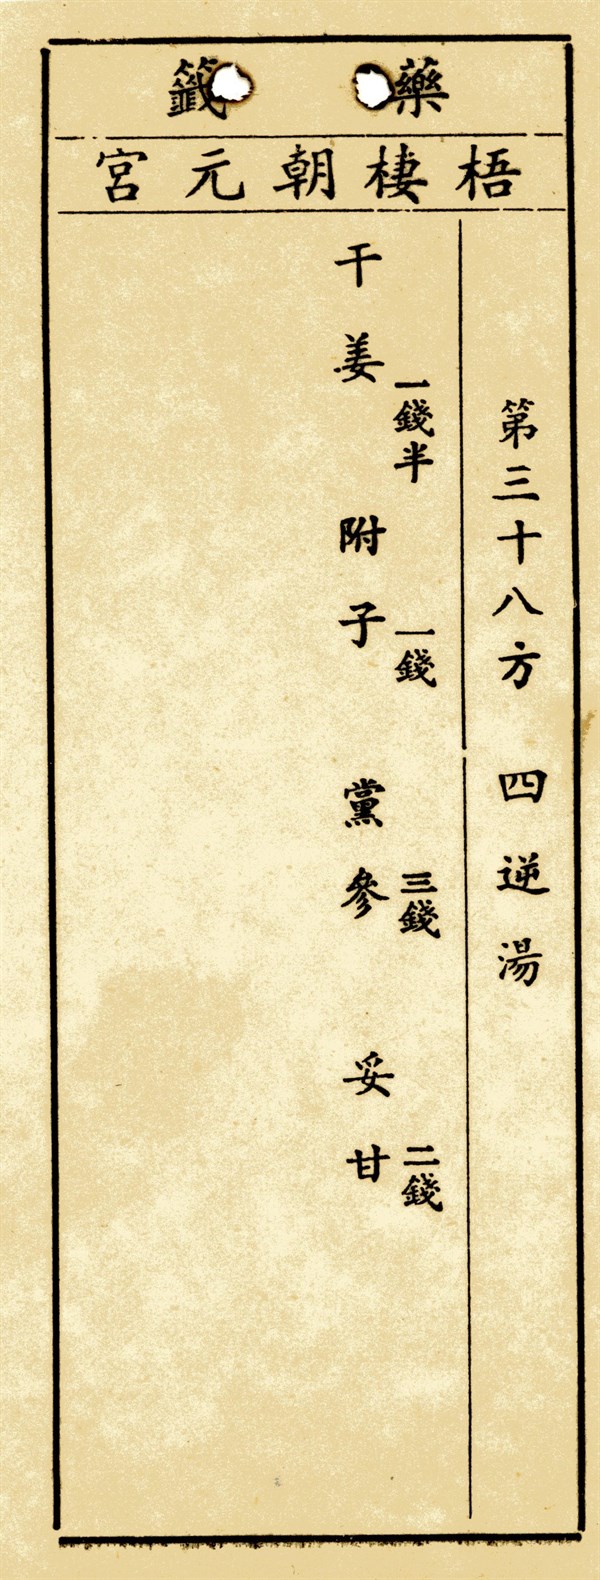 藥籤
梧棲朝元宮
第三十八方 四逆湯
干姜 一錢半 附子 一錢 黨參 三錢 妥甘 二錢